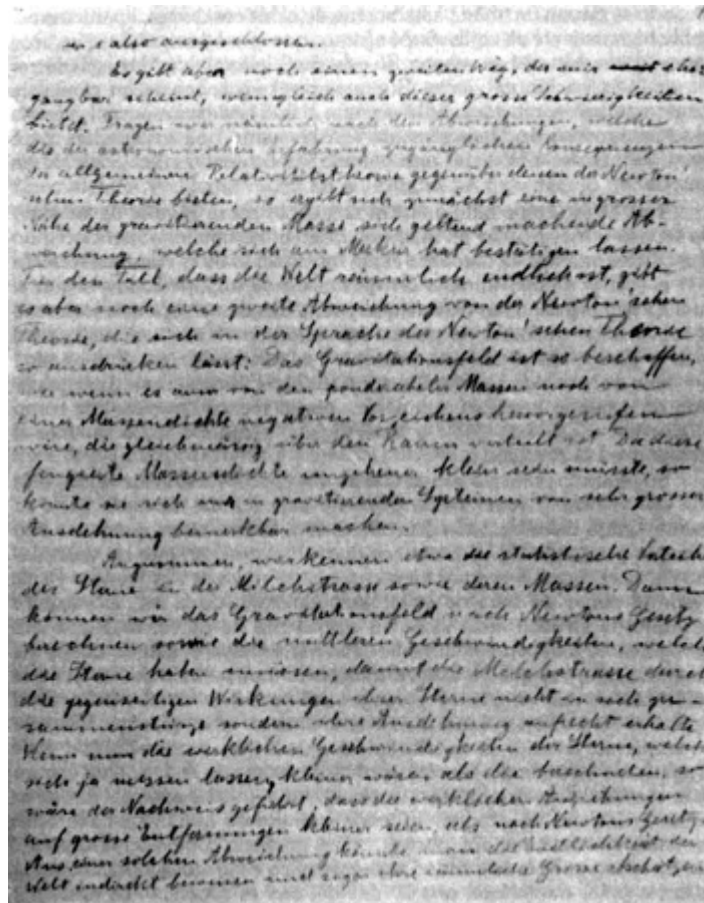 also ausgeschlossen.
Es gibt aber noch einen zweiten Weg, der mir
gangbar scheint, wenngleich auch dieser grosse Schwierigkeiten
bietet. Fragen wir nämlich nach den Abweichungen, welche
die der astronomischen Erfahrung zugänglichen Consequenzen
der allgemeinen Relativitätstheorie gegenüber denen der Newton'
schen Theorie bieten, so ergibt sich zunächst eine in grosser
Nähe der gravitierenden Masse sich geltend machende Ab-
weichung, welche sich am Merkur hat bestätigen lassen.
Für den Fall, dass die Welt räumlich endlich ist, gibt
es aber noch eine zweite Abweichung von der Newton'schen
Theorie, die sich in der Sprache der Newton'schen Theorie
so ausdrücken lässt: Das Gravitationsfeld ist so beschaffen,
wie wenn es ausser von den ponderabeln Massen noch von
einer Massendichte negativen Vorzeichens hervorgerufen
wäre, die gleichmässig über den Raum verteilt ist. Da diese
fingierte Massendichte ungeheuer klein sein müsste, so
könnte sie sich nur in gravitierenden Systemen von sehr grosser
Ausdehnung bemerkbar machen.
Angenommen, wir kennen etwa die statistische
der Sterne in der Milchstrasse sowie deren Massen. Dann
können wir das Gravitationsfeld nach Newtons Gesetz
berechnen sowie die mittleren Geschwindigkeiten, welche
die Sterne haben müssen, damit die Milchstrasse durch
die gegenseitigen Wirkungen ihrer Sterne nicht in sich zu-
sammenstürze sondern ihre Ausdehnung aufrecht erhalte
Wenn nun die wirklichen Geschwindigkeiten der Sterne, welche
sich ja messen lassen, kleiner wären als die berechneten, so
wäre der Nachweis geführt, dass die wirklichen Anziehungen
auf grosse Entfernungen kleiner seien, als nach Newtons Gesetz.
Aus einer solchen Abweichung könnte man die Endlichkeit der
Welt indirekt beweisen und sogar ihre räumliche Grösse abschätzen.